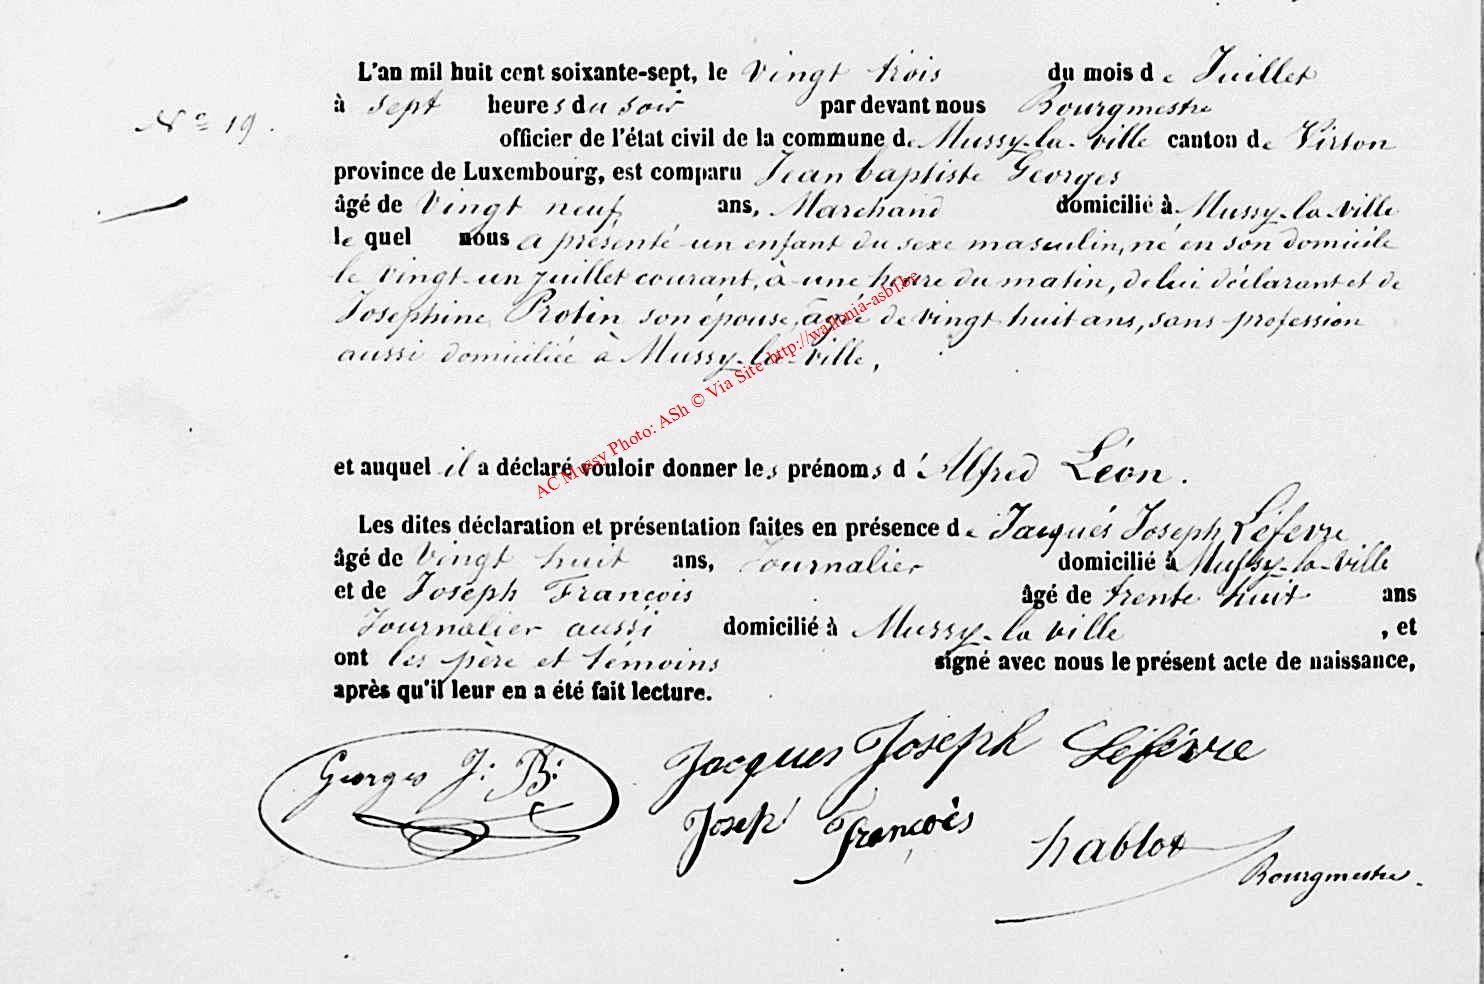 L'an mil huit cent soixante-sept, le vingt trois du mois de Juillet
N° 19.
à sept heures du soir par devant nous Bourgmestre
officier de l'état civil de la commune de Mussy-la-ville canton de Virton
province de Luxembourg, est comparu Jean baptiste Georges
âgé de vingt neuf ans, Marchand domicilié à Mussy-la-ville
le quel nous a présenté un enfant du sexe masculin, né en son domicile
le vingt-un juillet courant, à une heure du matin, de lui déclarant et de
Josephine Protin son épouse, âgée de vingt huit ans, sans profession
aussi domiciliée à Mussy-la-ville,
AC Mussy Photo: ASh © Via Site http://wallonia-asbl.be
et auquel il a déclaré vouloir donner les prénoms d'Alfred Léon.
Les dites déclaration et présentation faites en présence de Jacques Joseph Léfevre
âgé de vingt huit ans, Journalier domicilié à Mussy-la-ville
et de Joseph François âgé de trente huit ans
Journalier aussi domicilié à Mussy-la ville , et
ont les père et témoins signé avec nous le présent acte de naissance,
après qu'il leur en a été fait lecture.
Georges J: B: Jacques Joseph Léfévre
Joseph François hablot
Bourgmestre.